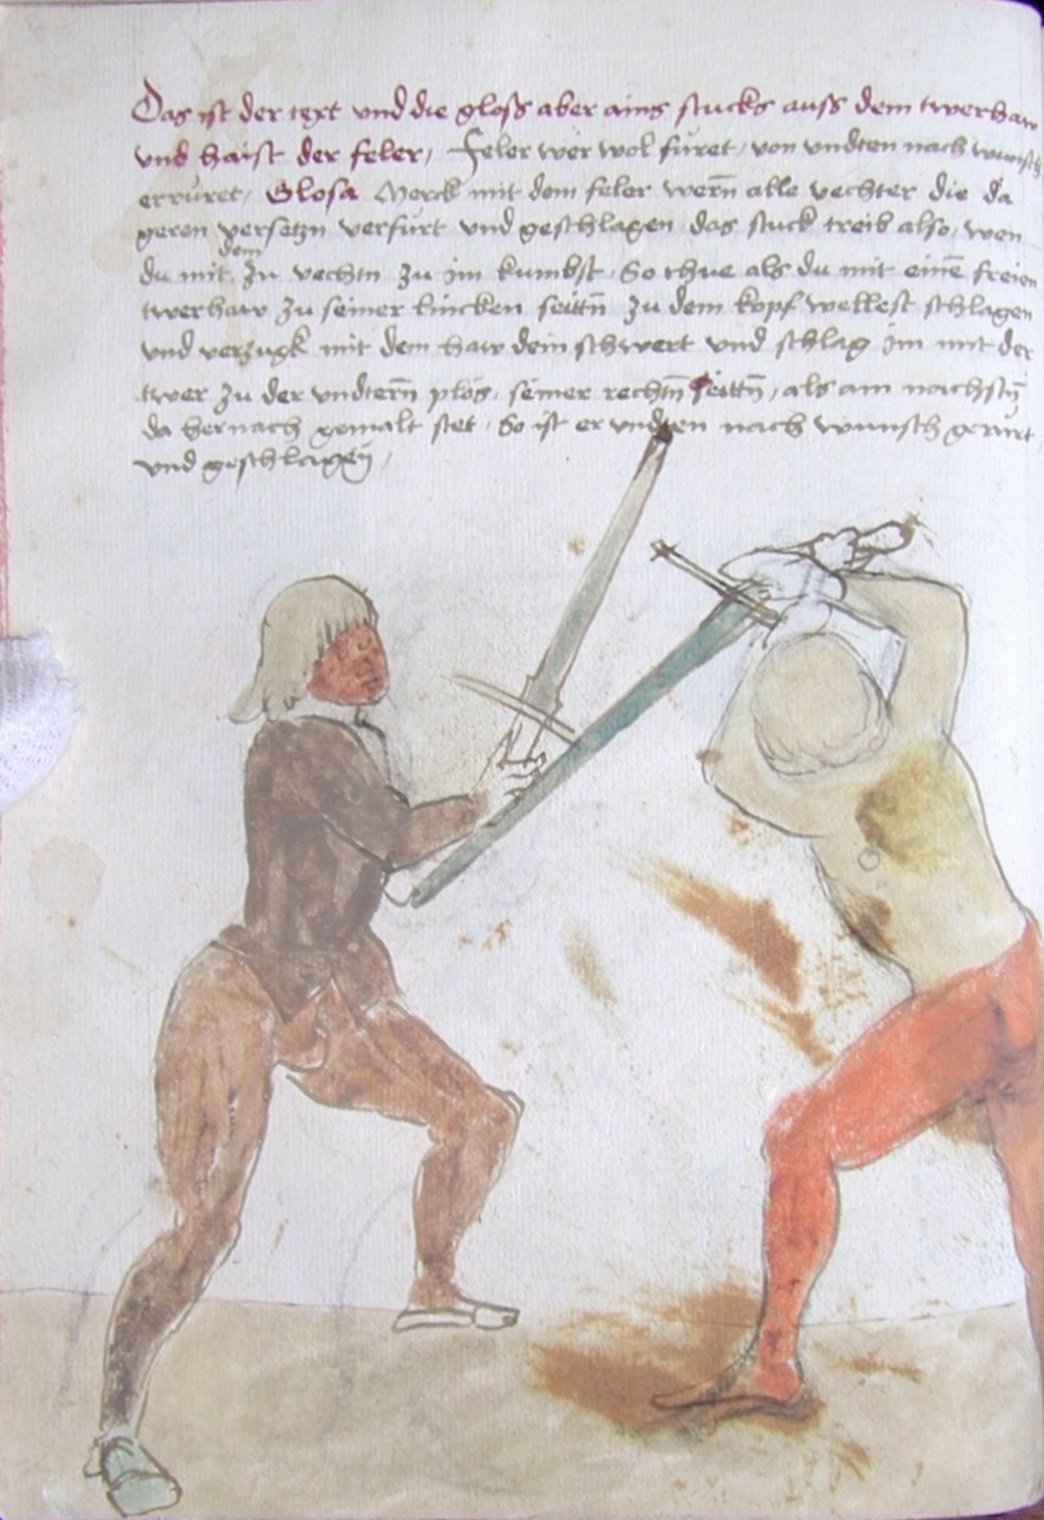 Das ist der text vnd die gloss aber ains stucks auss dem twerhaw
vnd haist der feler, Feler wer wol füret, von vndten nach wunsch
errüret, Glosa Merck mit dem feler wern̄ alle vechter die da
geren versetzn verfürt vnd geschlagen das stuck treib also, wen
dem
du mit zu vechtn zu im kumbst, So thue als du mit eine͞ freien
twerhaw zu seiner lincken seittn̄ zu dem kopf wellest schlagen
vnd verzugk mit dem haw dein schwert vnd schlag im mit der
twer zu der vndtern̄ plös, seiner rechtn̄ seittn̄, als am nachstn̄
da hernach gemalt stet, So ist er vndten nach wunsch gerürt
vnd geschlagen,